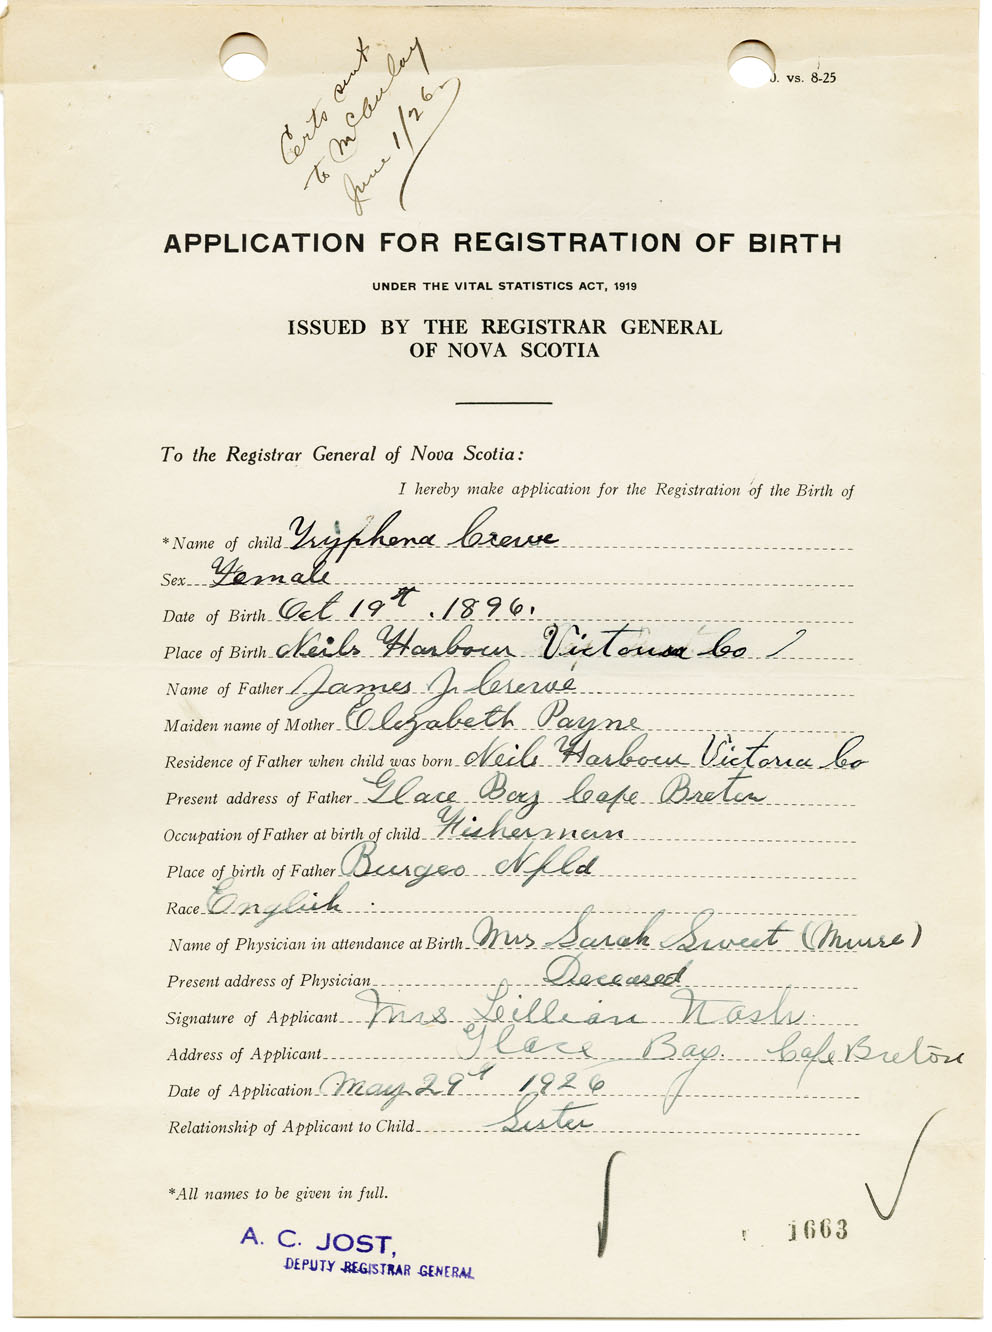 Certs sent
to McAulay
June 1/26
vs. 8-25
APPLICATION FOR REGISTRATION OF BIRTH
UNDER THE VITAL STATISTICS ACT, 1919
ISSUED BY THE REGISTRAR GENERAL
OF NOVA SCOTIA
To the Registrar General of Nova Scotia:
I hereby make application for the Registration of the Birth of
*Name of child Tryphena Crewe
Sex Female
Date of Birth Oct 19st. 1896.
Place of Birth Neils Harbour Victoria Co
Name of Father James J. Crewe
Maiden name of Mother Elizabeth Payne
Residence of Father when child was born Neils Harbour Victoria Co
Present address of Father Glace Bay Cape Breton
Occupation of Father at birth of child Fisherman
Place of birth of Father Burgeo Nfld
Race English
Name of Physician in attendance at Birth Mrs Sarah Sweet (Nurse)
Present address of Physician Deceased
Signature of Applicant Mrs Leillian Nash
Address of Applicant Glace Bay. Cape Breton
Date of Application May 29th 1926
Relationship of Applicant to Child Sister
*All names to be given in full.
A. C. JOST,
DEPUTY REGISTRAR GENERAL
1663